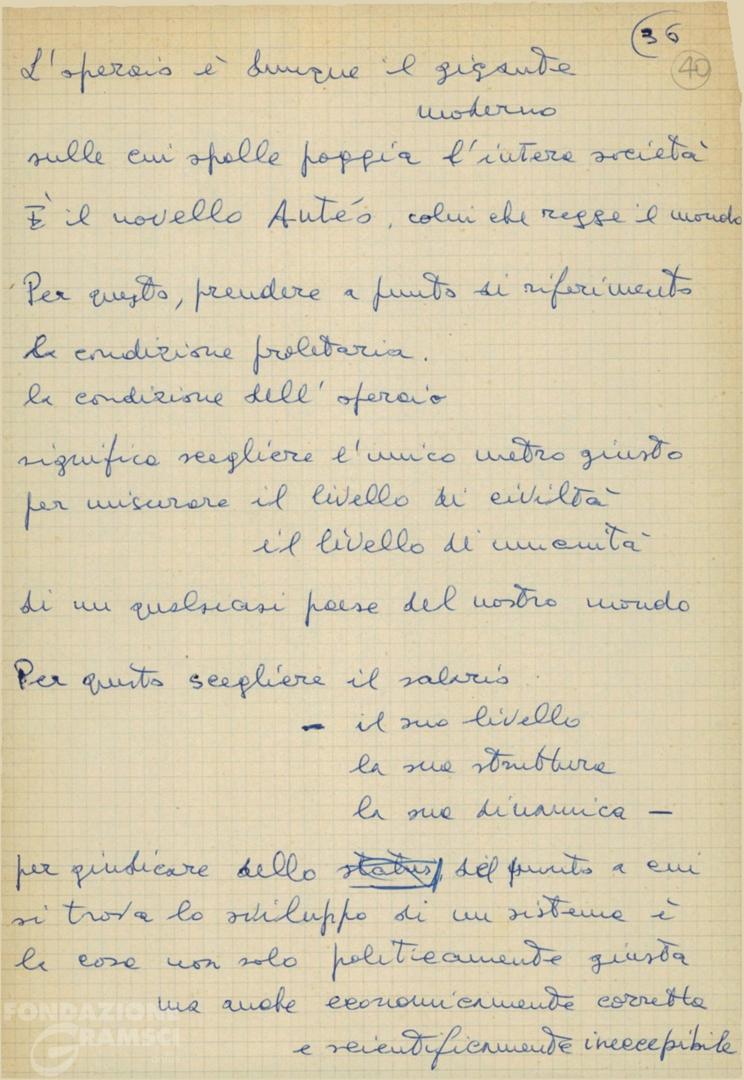 36
40
L'operaio è dunque il gigante
moderno
sulle cui spalle poggia l'intera società
È il novello Antéo, colui che regge il mondo
Per questo, prendere a punto di riferimento
la condizione proletaria.
la condizione dell'operaio
significa scegliere l'unico metro giusto
per misurare il livello di civiltà
il livello di umanità
di un qualsiasi paese del nostro mondo
Per questo scegliere il salario
– il suo livello
la sua struttura
la sua dinamica –
per giudicare dello status, del punto a cui
si trova lo sviluppo di un sistema è
la cosa non solo politicamente giusta
ma anche economicamente corretta
e scientificamente ineccepibile
FONDAZIONE
GRAMSCI